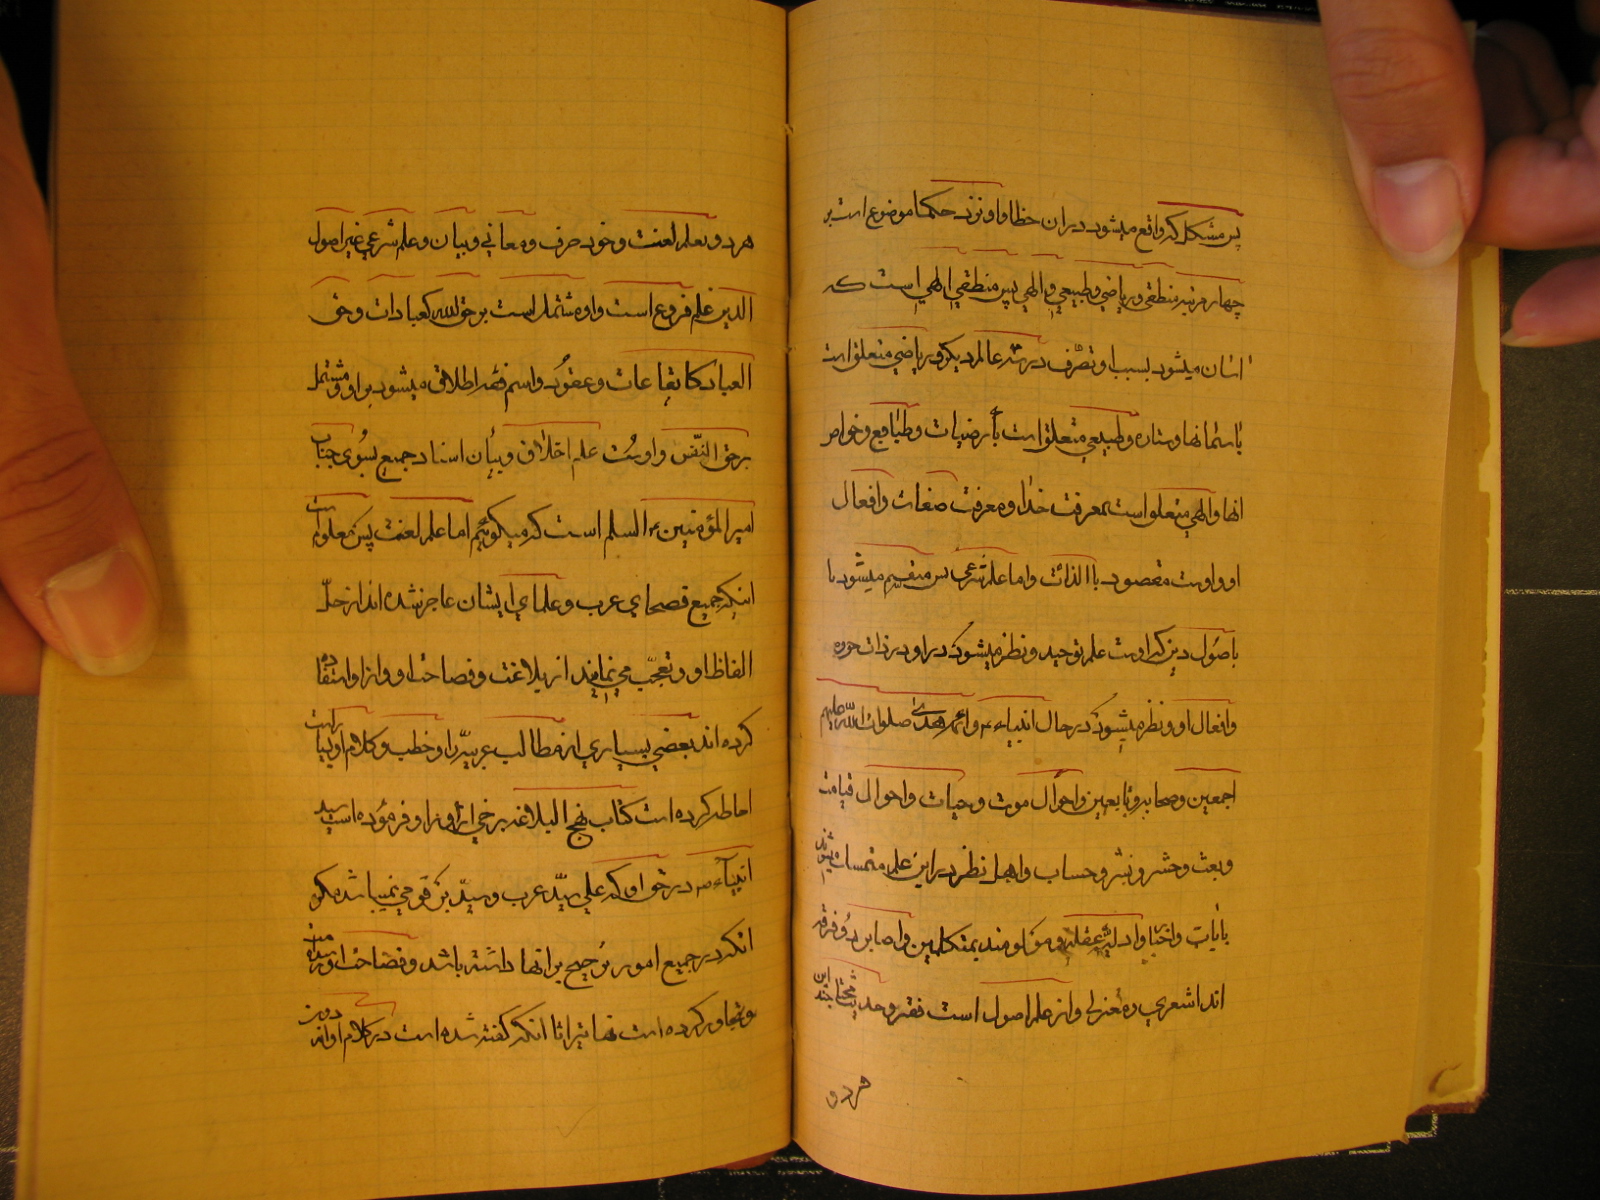 پس مشکل که واقع میشود در ان خطا و او نزد حکما موضوع است بر
چهار مرتبه منطقی و ریاضی و طبیعی و الهی پس منطقی الهی است که
انسان میشود بسبب او تصرف در عالم دیکر و ریاضی متعلق است
باسمانها و ستاره و طبیعی متعلق است بأرضیات و طبایع و خواص
انها و الهی متعلق است بمعرفت خدا و معرفت صفات و افعال
او و اوست مقصود باالذات و اما علم شرعی پس منقسم میشود با
باصول دین که اوست علم توحید و نظر میشود در او در ذات
و افعال او و نظر میشود در حال انبیاء و ائمه هدی صلوات الله علیهم
اجمعین و صحابه و تابعین و احوال موت و حیات و احوال قیامت
و بعث و حشر و نشر و حساب و اهل نظر در این علم میشوند
بأیات و اخبار و ادله عقلیه و بمتکلمین و دو فرقه
اند اشعری و معتزلی و از علم اصول است فقه و حدیث این
هر دو
هر دو بعلم لعنت و خود صرف و معانی و بیان و علم شرعی غیر اصول
الدین علم فروع است و او مشتمل است بر حق لله کعبادات و حق
العباد کایقاعات و عقود و اسم فقه اطلاق میشود بر او و مشتمل
بر حق النفس و اوست علم اخلاق و بیان اسناد جمیع بسوی جناب
امیر المؤمنین السلم است که میکوئیم اما علم لعنت پس معلوم است
اینکه جمیع فصحای عرب و علمای ایشان عاجز شده اند از حل
الفاظ او و تعجب می نمایند از بلاغت و فصاحت او و از او
کرده اند بعضی بسیاری از مطالب عربیه را و خطب و کلام او
احاطه کرده است کتاب نهج البلاغه برخی از او را و فرموده است سید
انبیاء در حق او که علی سید عرب و سید بزرک قومی نمیباشد مکر
انکه در جمیع امور ترجیح بر انها داشته باشد و فصاحت او
و تجاوز کرده است نهایت را تا انکه کفته شده است در کلام او دون